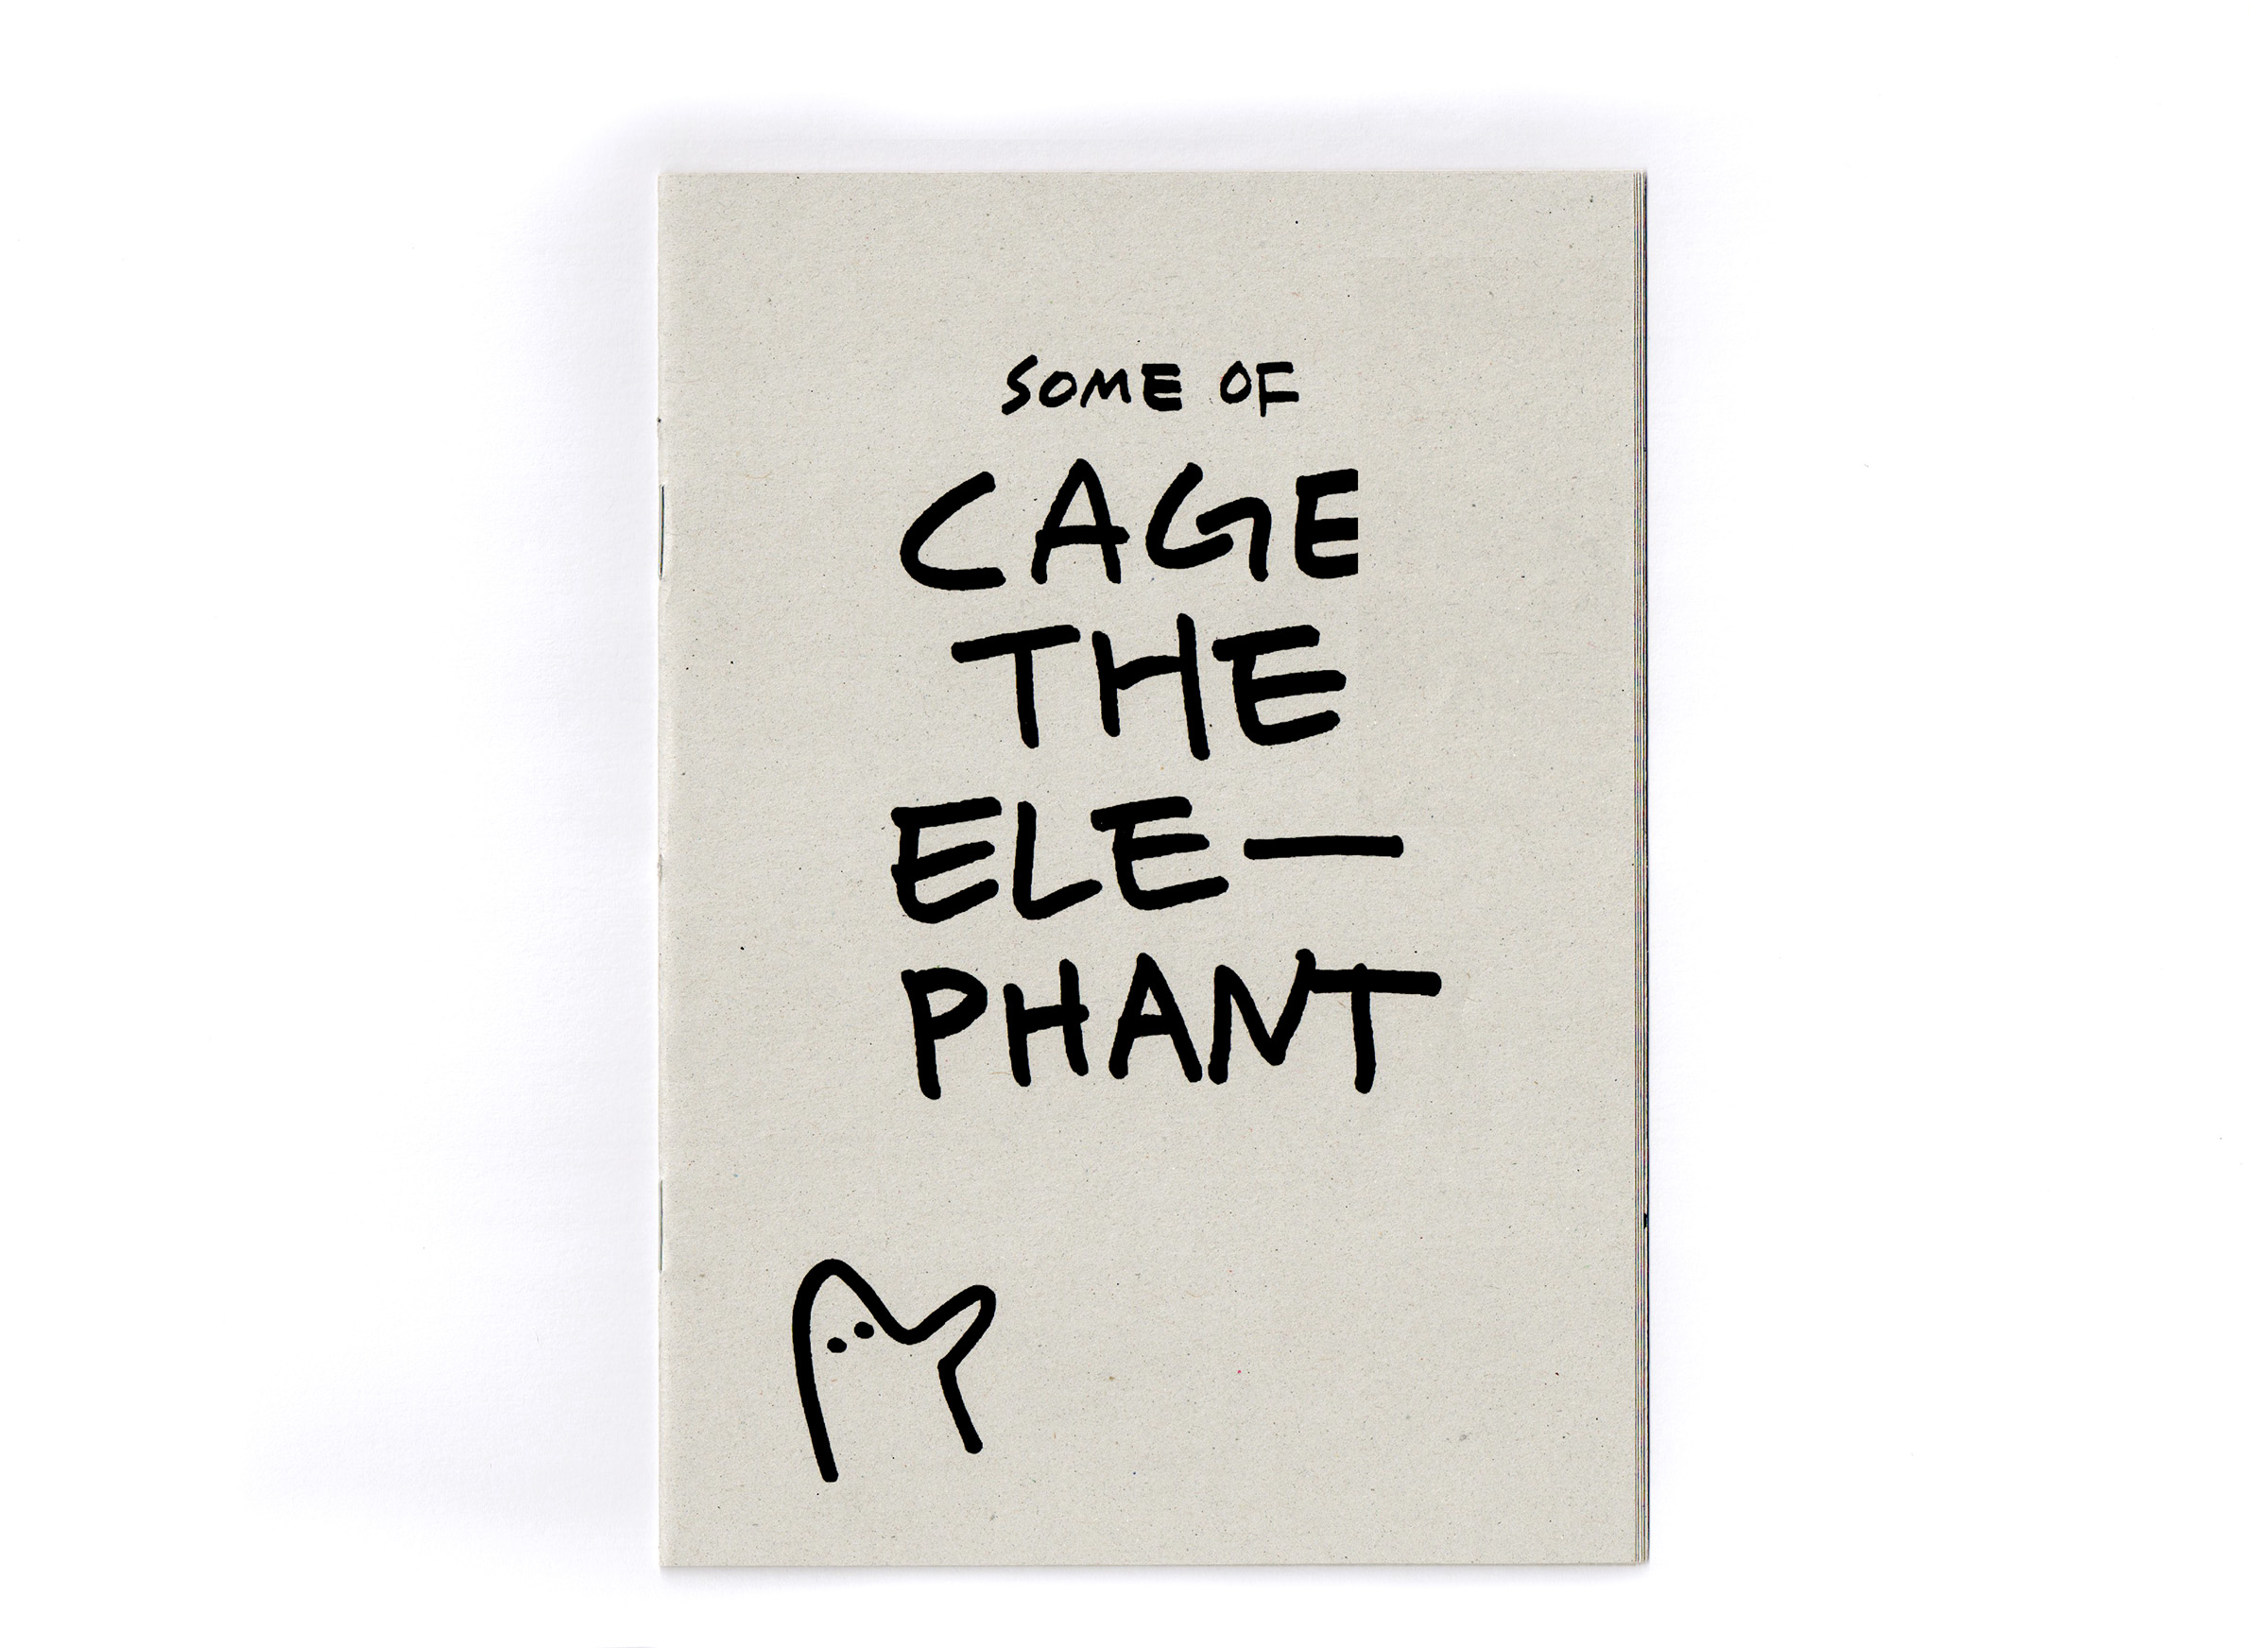 SOME OF
CAGE
THE
ELE—
PHANT